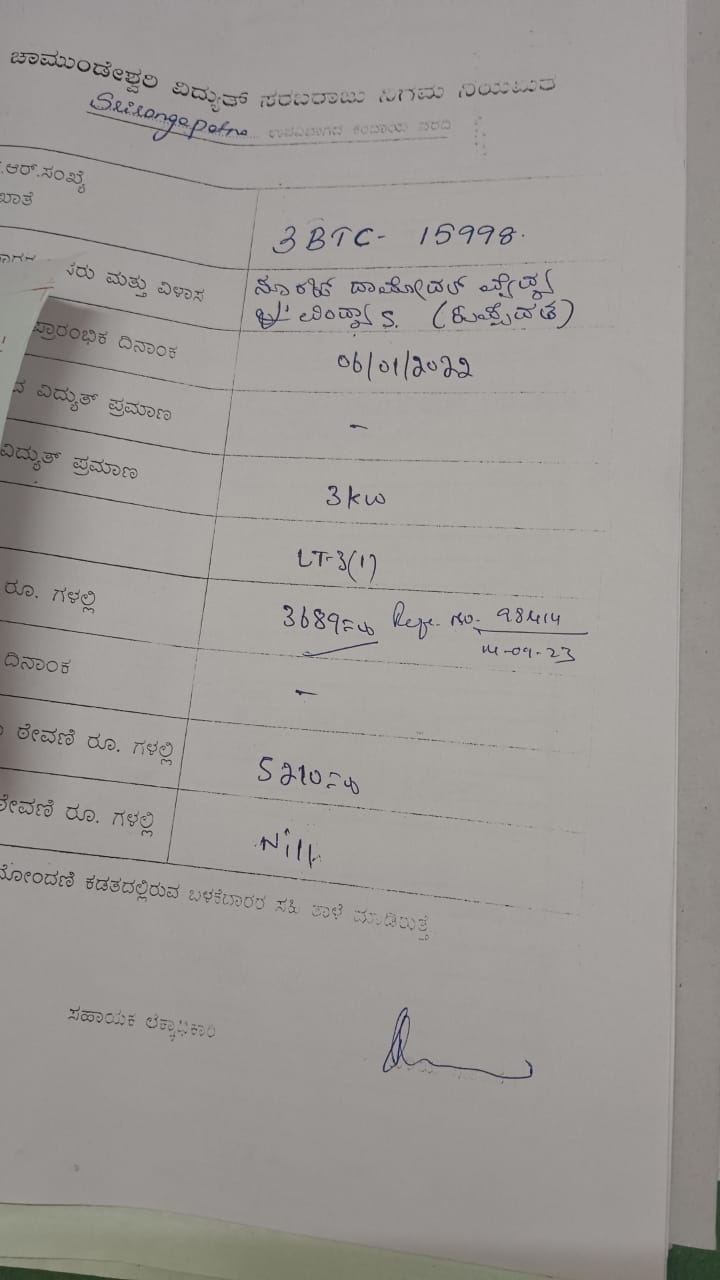 ಚಾಮುಂಡೇಶ್ವರಿ ವಿದ್ಯುತ್ ಸರಬರಾಜು ನಿಗಮ ನಿಯಮಿತ
Srirangapatna ಉಪವಿಭಾಗದ ಕಂದಾಯ ವರದಿ
.ಆರ್.ಸಂಖ್ಯೆ
ಖಾತೆ
3BTC- 15998.
ಮತ್ತು ವಿಳಾಸ
ಪ್ರಾರಂಭಿಕ ದಿನಾಂಕ
06/01/2022
ವಿದ್ಯುತ್ ಪ್ರಮಾಣ
-
ವಿದ್ಯುತ್ ಪ್ರಮಾಣ
3kw
LT-3(1)
ರೂ. ಗಳಲ್ಲಿ
3689=00 Refe. no. 98414
14-09-23
ದಿನಾಂಕ
-
ಠೇವಣಿ ರೂ. ಗಳಲ್ಲಿ
5210=00
ಠೇವಣಿ ರೂ. ಗಳಲ್ಲಿ
Nill
ನೋಂದಣಿ ಕಡತದಲ್ಲಿರುವ ಬಳಕೆದಾರರ ಸಹಿ ತಾಳೆ ಮಾಡಿರುತ್ತೆ
ಸಹಾಯಕ ಲೆಕ್ಕಾಧಿಕಾರಿ